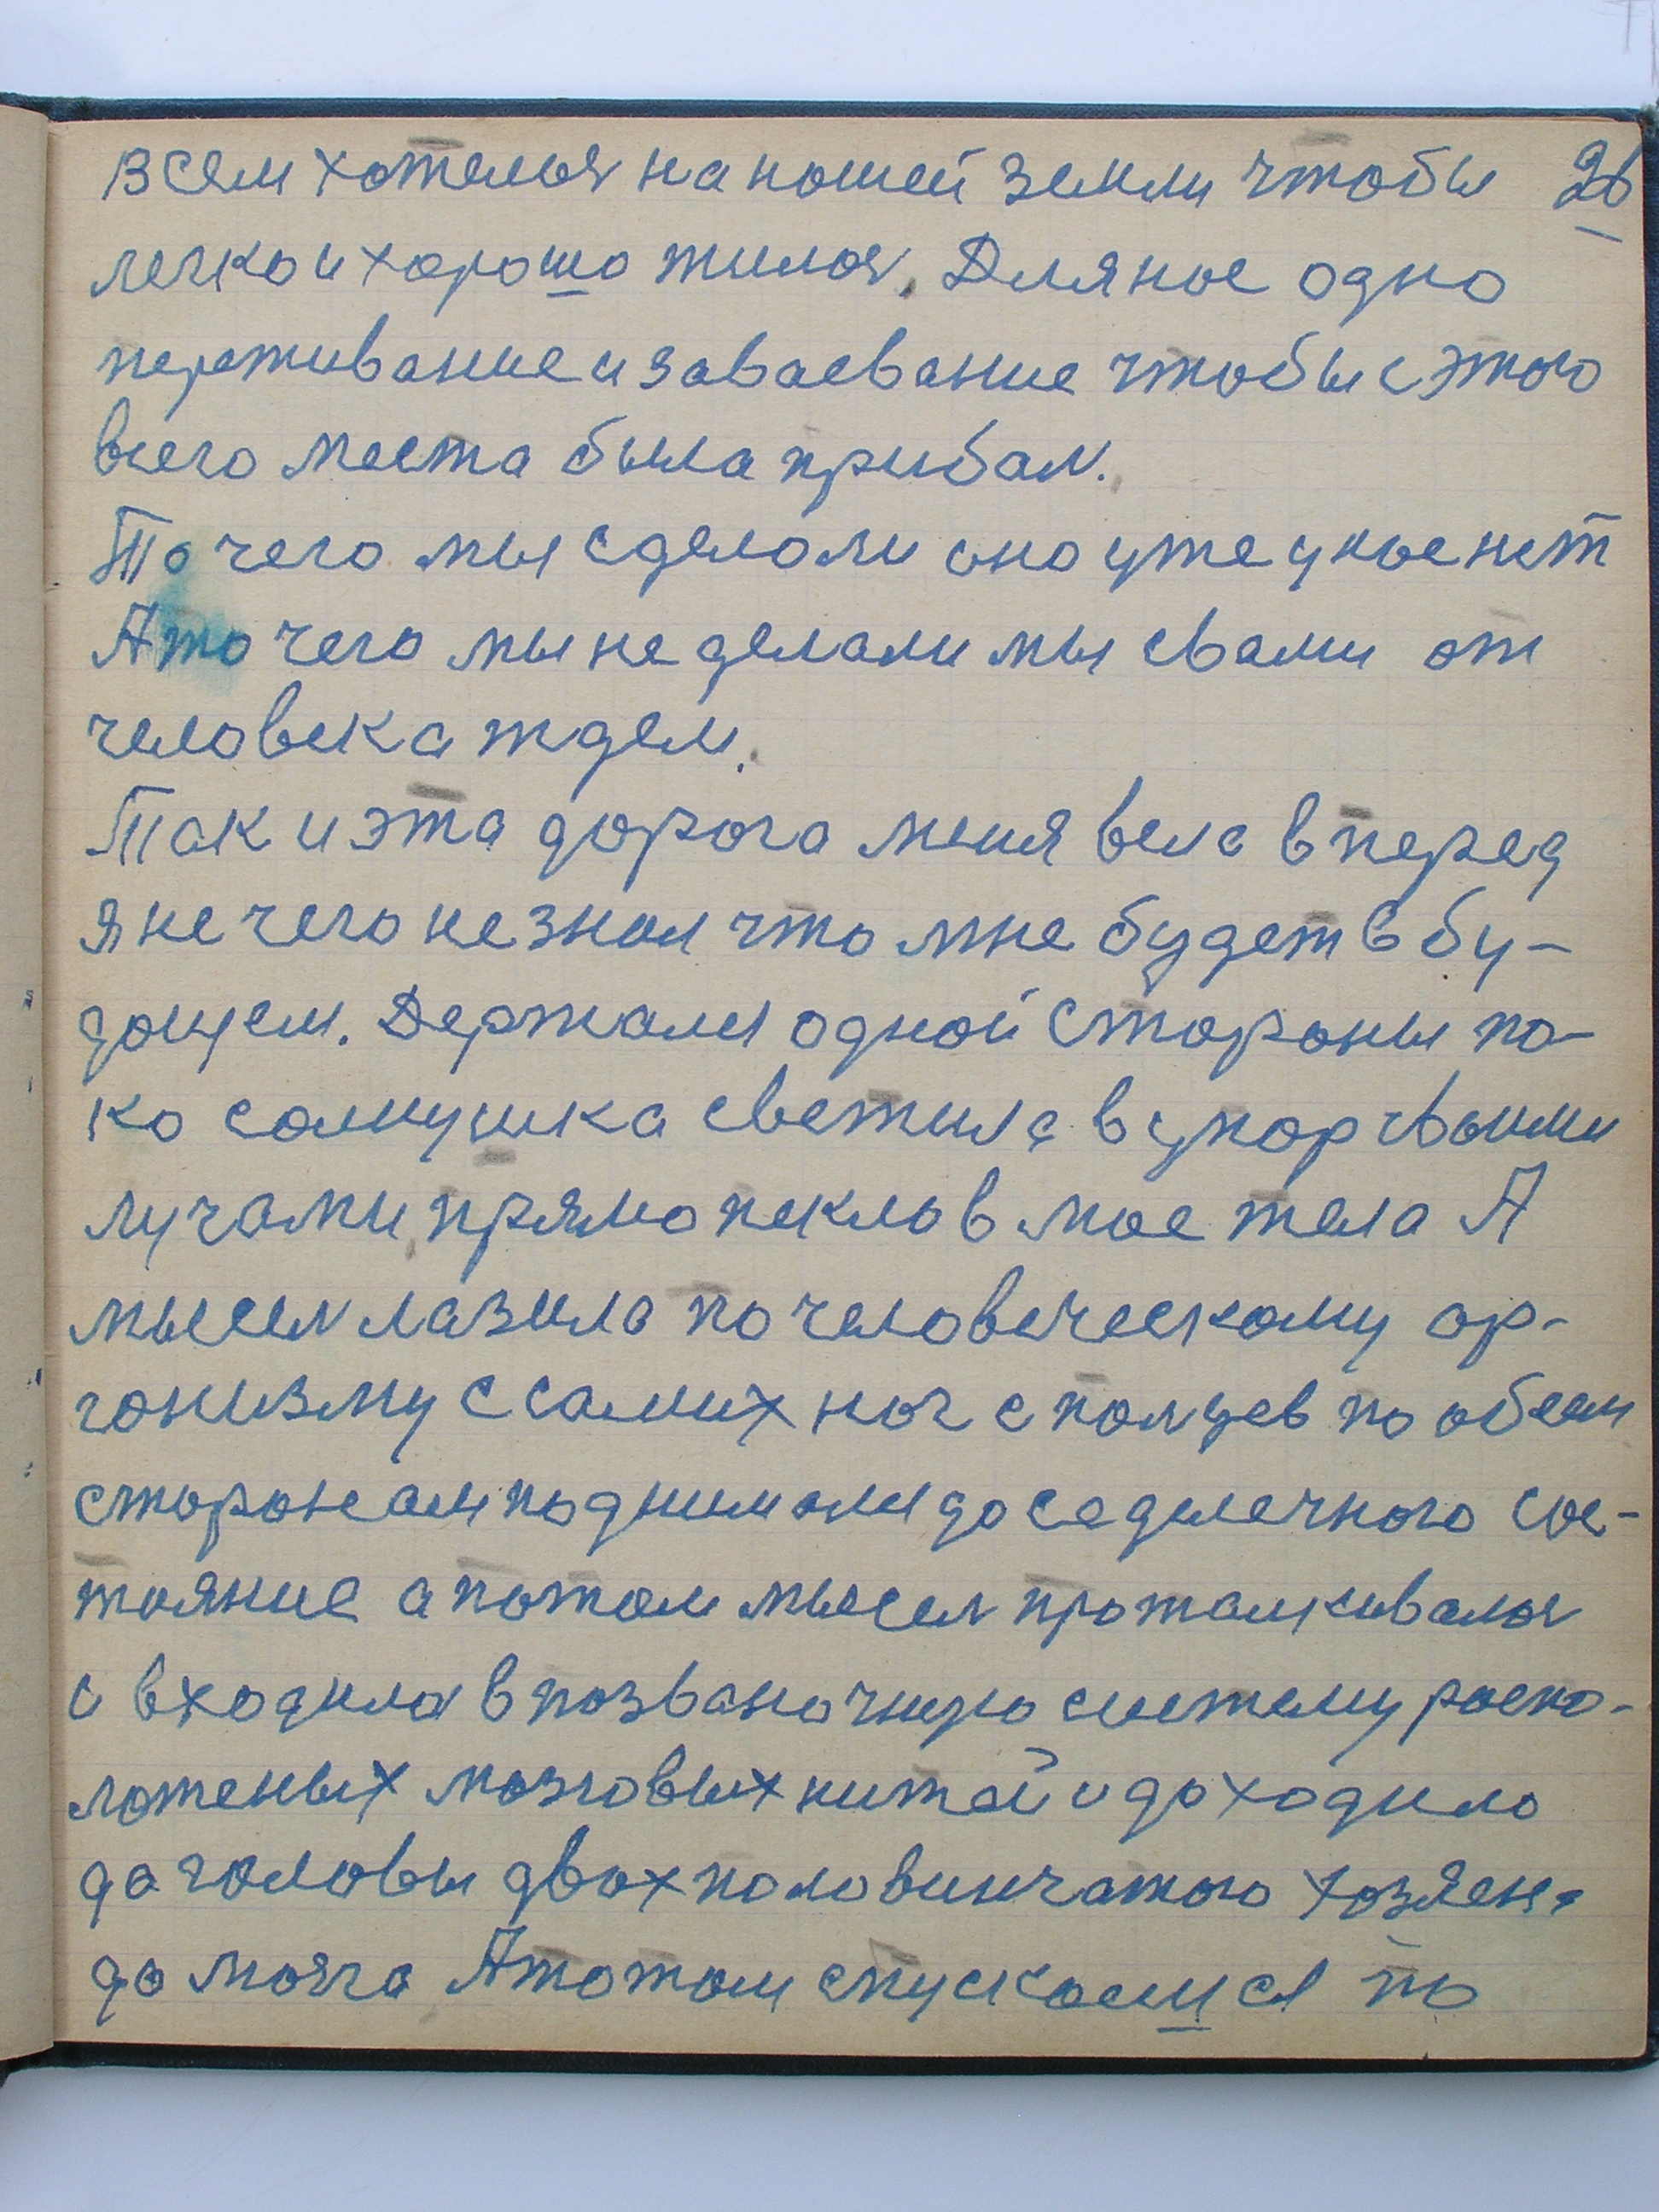 всем хотелься на нашей земли чтобы 26
легко и хорошо жилься. Для нас одно
переживание и заваевание чтобы с этого
всего места была прибал.
То чего мы сделали оно уже у нас нет
А то чего мы не делали мы свами от
человека ждем.
Так и эта дорога меня вела вперед
я не чего не знал что мне будет в бу-
дощем. Держался одной стороны по-
ко солнушка светила в упор своими
лучами, прямо пекло в мое тела А
мысел лазила по человеческому ор-
гонизму с самих ног с польцев по обеем
сторонам поднимался до седалечного сос-
тояние а потом мысел проталкивалься
и входила в позваночную систему распо-
ложеных мозговых нитей и доходило
до головы двох половинчатого хозяена
до мозга А потом спускаешся по